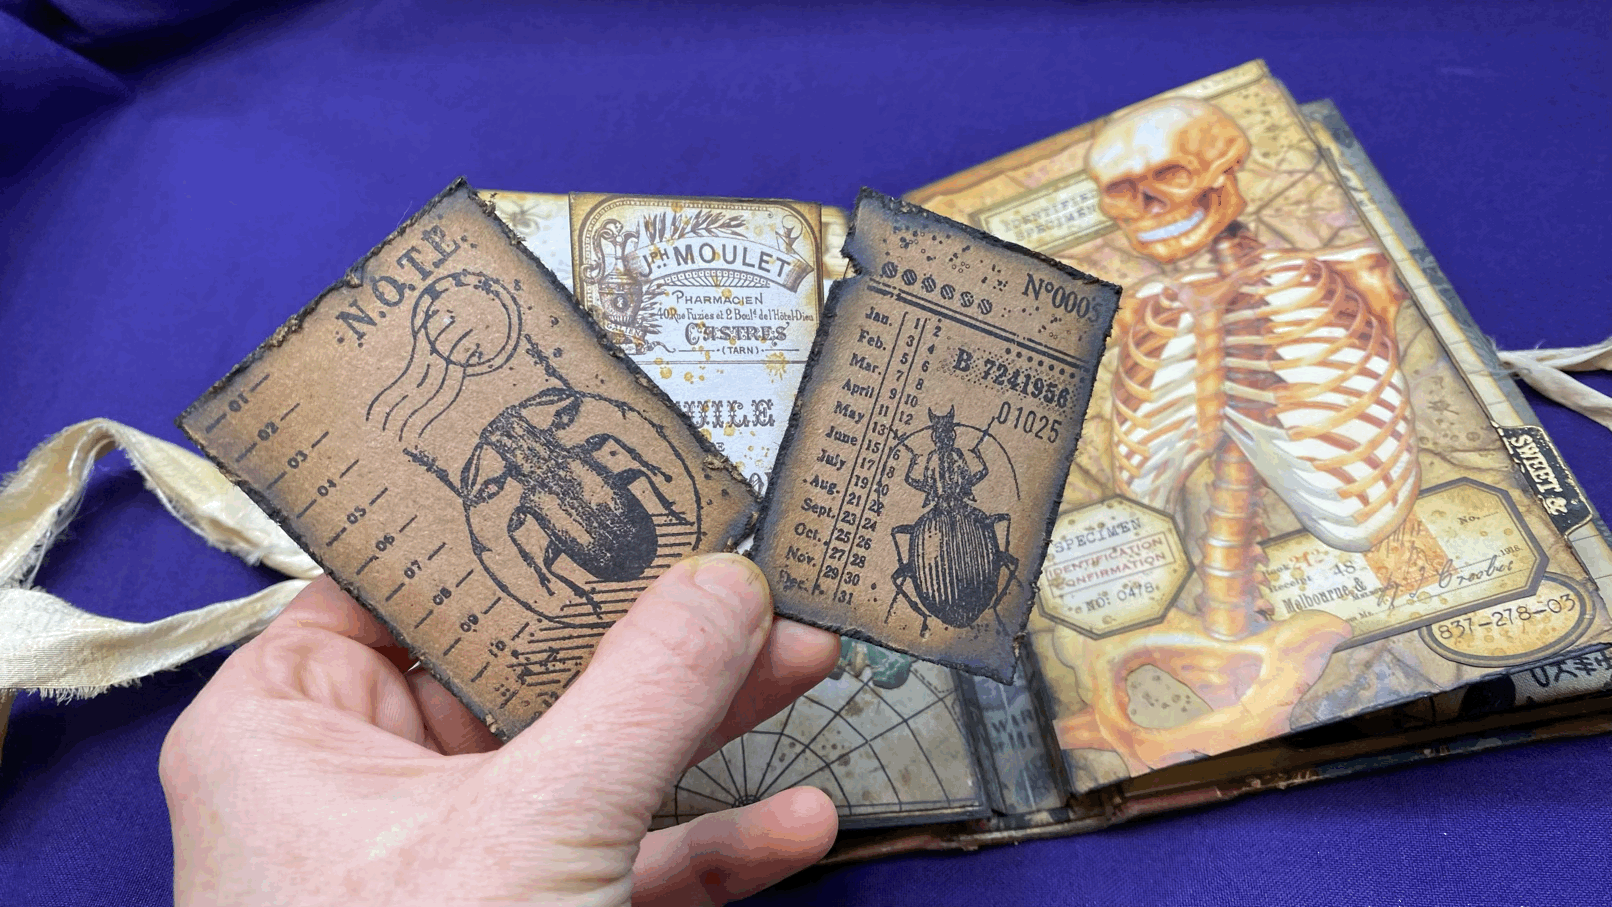 N.O.T.E.
01
02
03
04
05
06
07
08
09
10
JPH MOULET
PHARMACIEN
40 Rue Fuzies et 2 Boulᵈ de l'Hôtel-Dieu
CASTRES
(TARN)
Nº0005
Jan. 1 2
Feb. 3 4
Mar. 5 6
April 7 8
May 9 10
June 11 12
July 13
Aug. 15 16
Sept. 17 18
Oct. 19 20
Nov. 21 22
Dec. 23 24
25 26
27 28
29 30
31
B 7241956
01025
IDENTIFIED
SPECIMEN
SPECIMEN
IDENTIFICATION
CONFIRMATION
NO: 0478.
No.
1918.
Receipt 48
Melbourne &
837-278-03
SWEET &